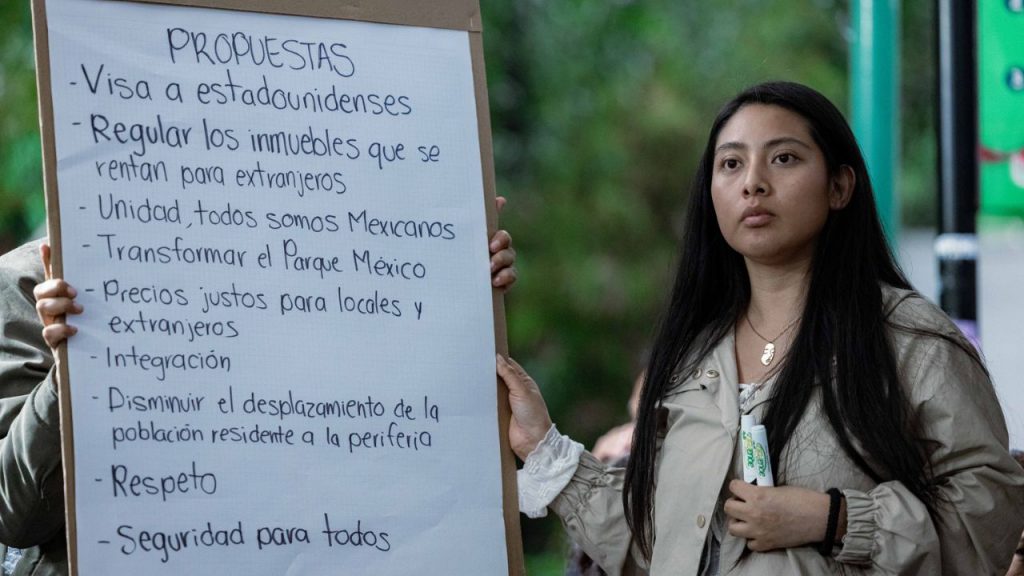 PROPUESTAS
- Visa a estadounidenses
- Regular los inmuebles que se
rentan para extranjeros
- Unidad, todos somos Mexicanos
- Transformar el Parque México
- Precios justos para locales y
extranjeros
- Integración
- Disminuir el desplazamiento de la
población residente a la periferia
- Respeto
- Seguridad para todos